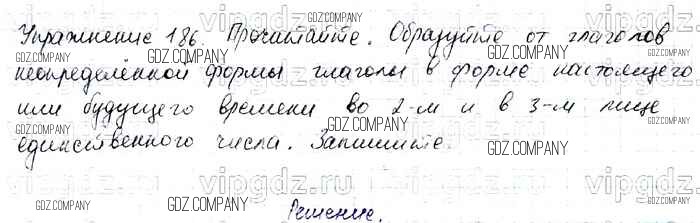 Упражнение 186. Прочитайте. Образуйте от глаголов
неопределённой формы глаголы в форме настоящего
или будущего времени во 2-м и в 3-м лице
единственного числа. Запишите.
Решение.
GDZ.COMPANY
vipgdz.ru